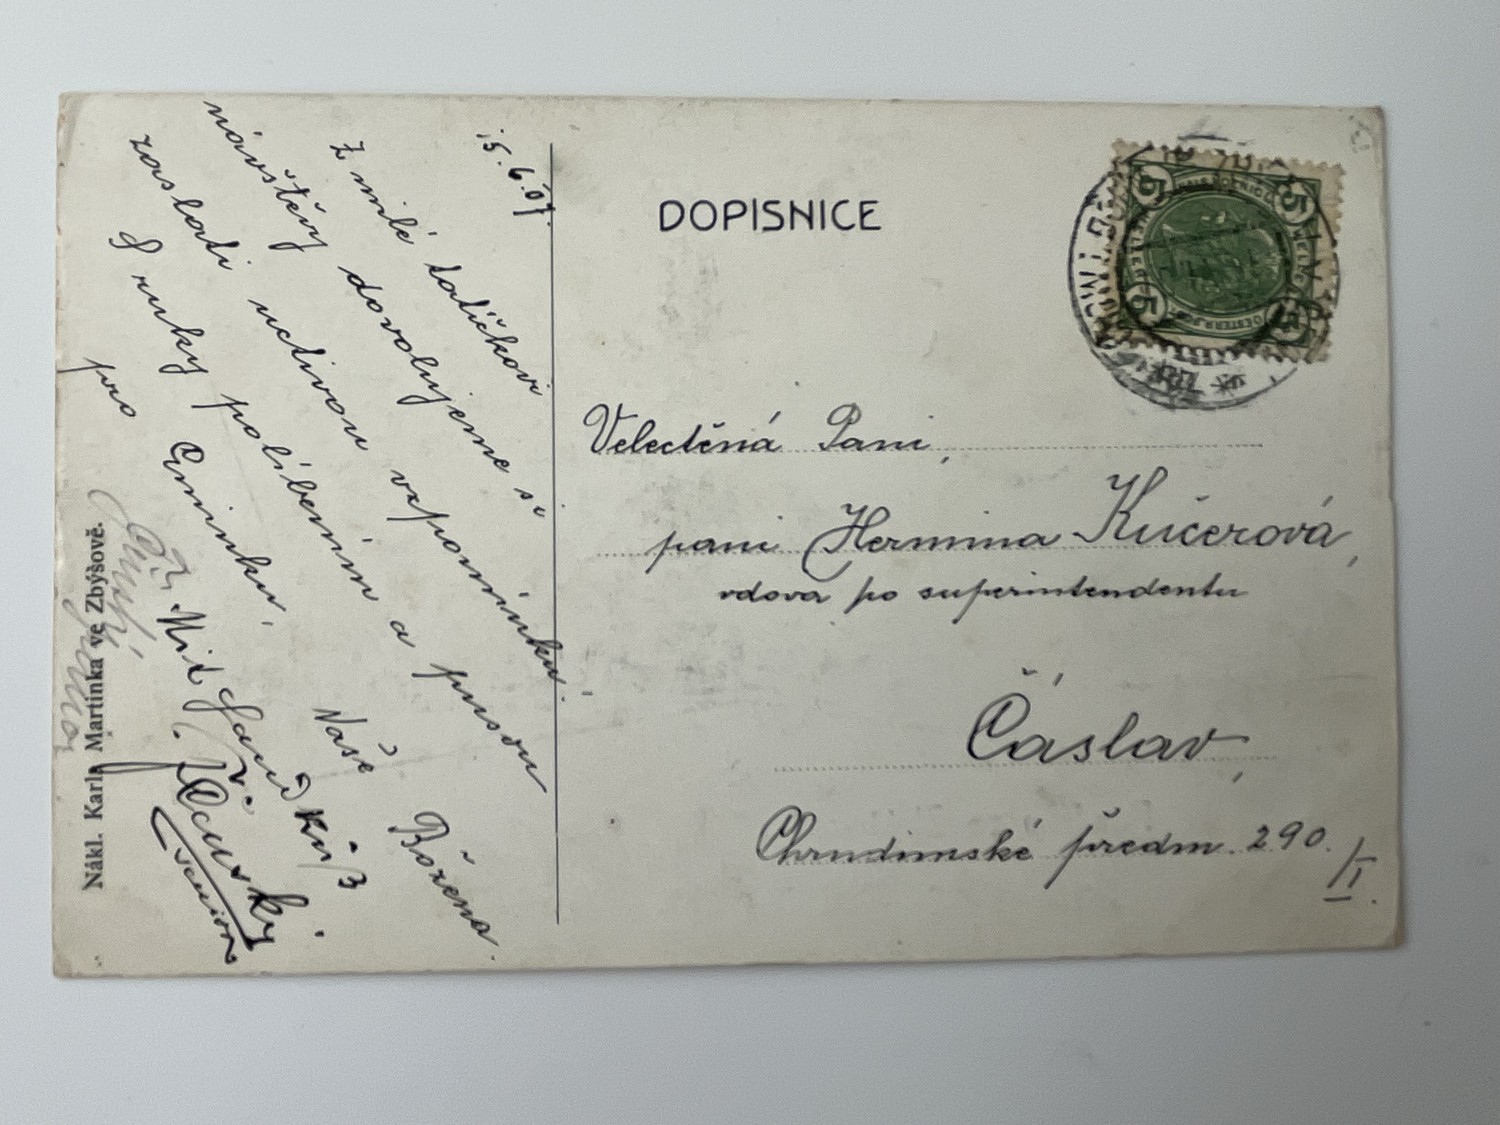 15.6.07.
Z milé tatíčkovi
návštěvy dovolujeme si
zaslati uctivou vzpomínku.
S ruky políbením a pusou
pro Eminku,
Naše Božena.
senior
Nákl. Karla Martinka ve Zbýšově.
DOPISNICE
5 5
5 5
Velectěná Paní,
paní Hermina Kučerová,
vdova po superintendentu
Čáslav,
Chrudimské předm. 290.
/I.